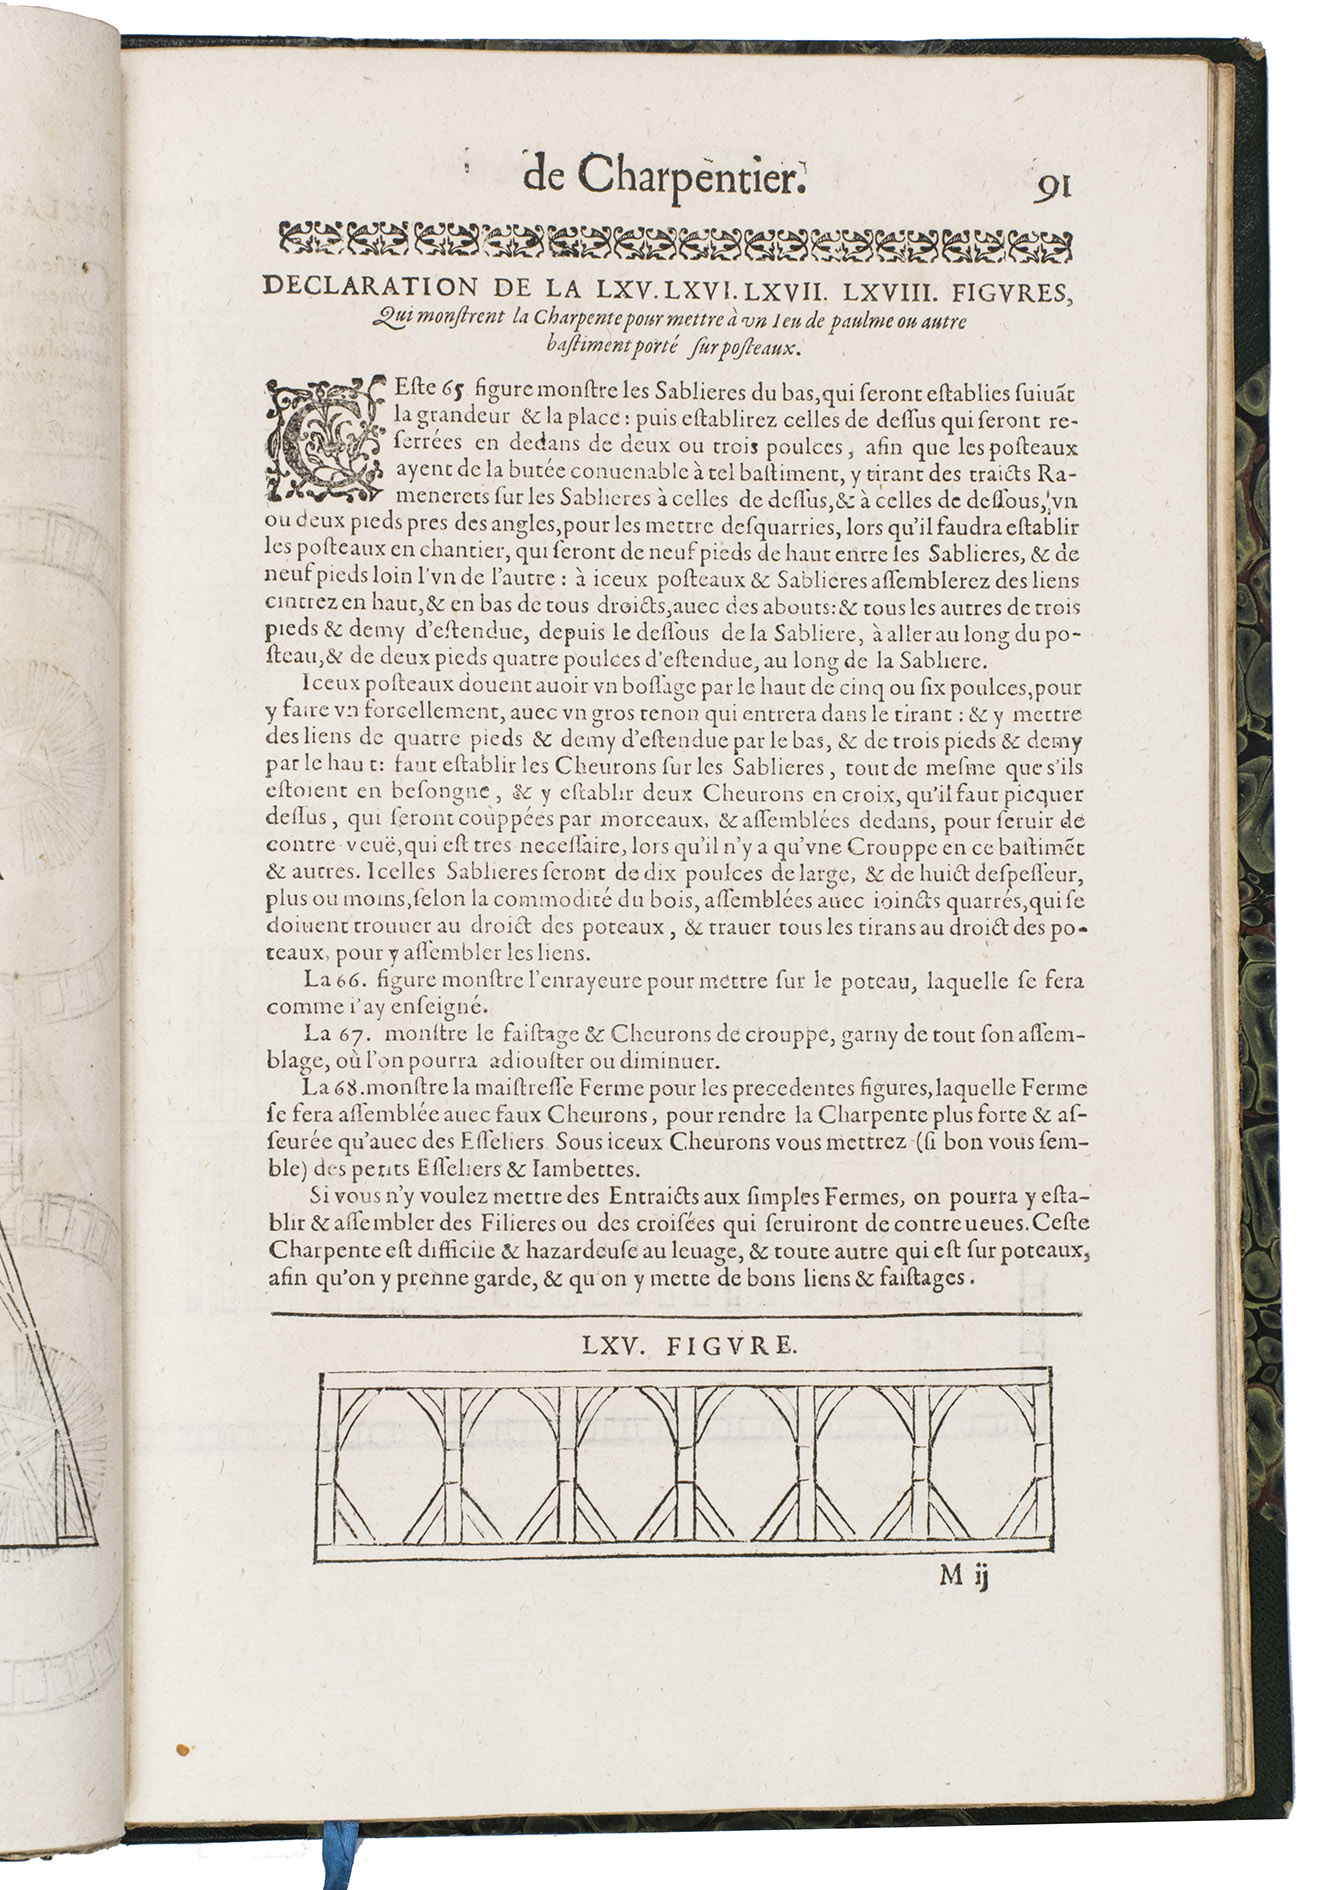 de Charpentier.
91
DECLARATION DE LA LXV. LXVI. LXVII. LXVIII. FIGVRES,
Qui monſtrent la Charpente pour mettre à vn Ieu de paulme ou autre
baſtiment porté ſur poſteaux.
CEſte 65 figure monſtre les Sablieres du bas, qui ſeront eſtablies ſuiuãt
la grandeur & la place : puis eſtablirez celles de deſſus qui ſeront re-
ſerrées en dedans de deux ou trois poulces, afin que les poſteaux
ayent de la butée conuenable à tel baſtiment, y tirant des traicts Ra-
menerets ſur les Sablieres à celles de deſſus, & à celles de deſſous, vn
ou deux pieds pres des angles, pour les mettre deſquarries, lors qu'il faudra eſtablir
les poſteaux en chantier, qui ſeront de neuf pieds de haut entre les Sablieres, & de
neuf pieds loin l'vn de l'autre : à iceux poſteaux & Sablieres aſſemblerez des liens
cintrez en haut, & en bas de tous droicts, auec des abouts: & tous les autres de trois
pieds & demy d'eſtendue, depuis le deſſous de la Sabliere, à aller au long du po-
ſteau, & de deux pieds quatre poulces d'eſtendue, au long de la Sabliere.
Iceux poſteaux douent auoir vn boſſage par le haut de cinq ou ſix poulces, pour
y faire vn forcellement, auec vn gros tenon qui entrera dans le tirant : & y mettre
des liens de quatre pieds & demy d'eſtendue par le bas, & de trois pieds & demy
par le haut: faut eſtablir les Cheurons ſur les Sablieres, tout de meſme que s'ils
eſtoient en beſongne, & y eſtablir deux Cheurons en croix, qu'il faut picquer
deſſus, qui ſeront couppées par morceaux, & aſſemblées dedans, pour ſeruir de
contre veuë, qui eſt tres neceſſaire, lors qu'il n'y a qu'vne Crouppe en ce baſtimẽt
& autres. Icelles Sablieres ſeront de dix poulces de large, & de huict deſpeſſeur,
plus ou moins, ſelon la commodité du bois, aſſemblées auec ioincts quarrés, qui ſe
doiuent trouuer au droict des poteaux, & trauer tous les tirans au droict des po-
teaux, pour y aſſembler les liens.
La 66. figure monſtre l'enrayeure pour mettre ſur le poteau, laquelle ſe fera
comme i'ay enſeigné.
La 67. monſtre le faiſtage & Cheurons de crouppe, garny de tout ſon aſſem-
blage, où l'on pourra adiouſter ou diminuer.
La 68. monſtre la maiſtreſſe Ferme pour les precedentes figures, laquelle Ferme
ſe fera aſſemblée auec faux Cheurons, pour rendre la Charpente plus forte & aſ-
ſeurée qu'auec des Eſſeliers Sous iceux Cheurons vous mettrez (ſi bon vous ſem-
ble) des petits Eſſeliers & Iambettes.
Si vous n'y voulez mettre des Entraicts aux ſimples Fermes, on pourra y eſta-
blir & aſſembler des Filieres ou des croiſées qui ſeruiront de contreueues. Ceſte
Charpente eſt difficile & hazardeuſe au leuage, & toute autre qui eſt ſur poteaux,
afin qu'on y prenne garde, & qu on y mette de bons liens & faiſtages.
LXV. FIGVRE.
M ij